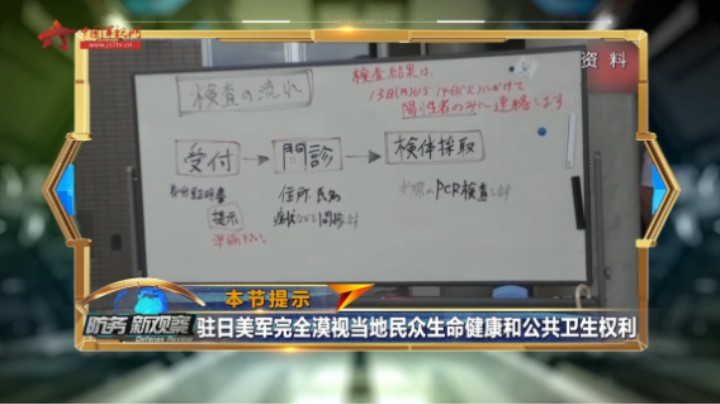 中国军视网
www.js7tv.cn
资料
検査の流れ
検査結果は、
13日(月)から14日(火)にかけて
陽性者のみに連絡します
受付→問診→検体採取
身分証明書
提示
準備下さい
住所 氏名
症状などを問診します
PCR検査します
本节提示
防务新观察
Defense Review
驻日美军完全漠视当地民众生命健康和公共卫生权利